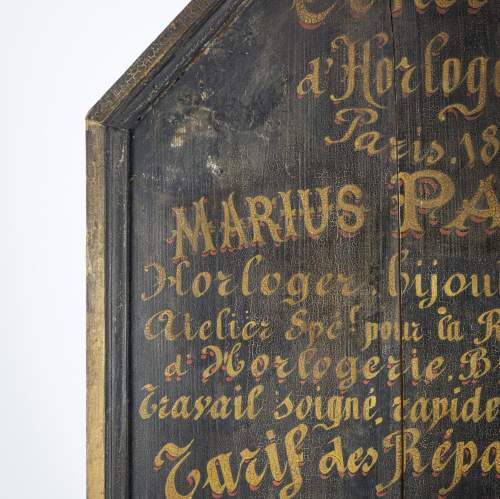 d'Horloge
Paris. 18
MARIUS PA
Horloger, bijou
Atelier Spé.l pour la R
d'Horlogerie. B
Travail soigné, rapide
Tarif des Répa